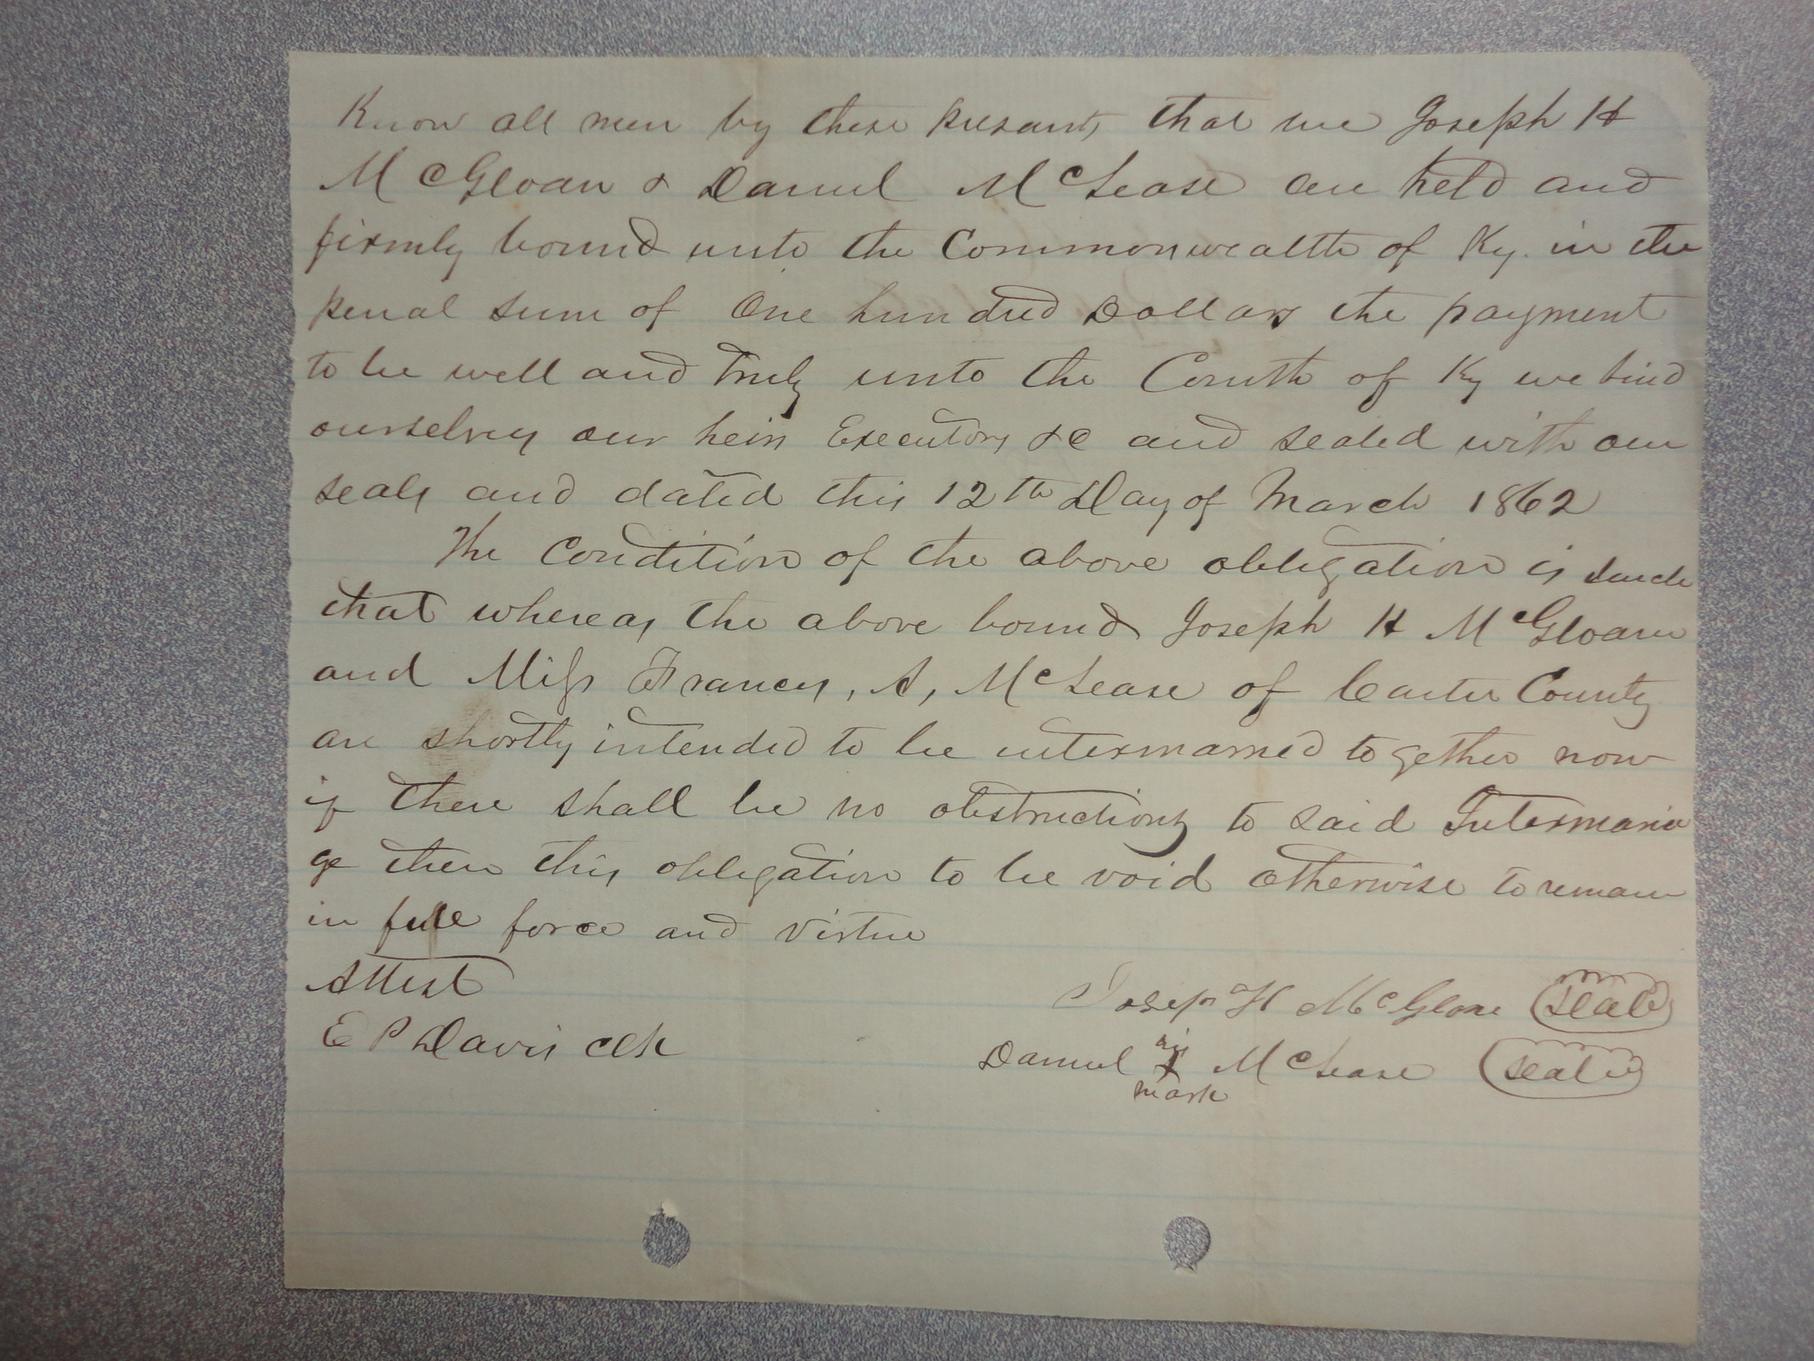 Know all men by these presents that we Joseph H
McGloan & Daniel McLease are held and
firmly bound unto the Commonwealth of Ky. in the
penal sum of One hundred Dollars the payment
to be well and truly unto the Comth of Ky we bind
ourselves our heirs Executors &c and sealed with our
seals and dated this 12th Day of March 1862
The Condition of the above obligation is such
that whereas the above bound Joseph H McGloan
and Miss Frances, A, McLease of Carter County
are shortly intended to be intermarried together now
if there shall be no obstructions to said Intermaria
ge then this obligation to be void otherwise to remain
in full force and virtue
Attest
Joseph H McGlone seal
E P Davis clk
his
Daniel X McLease seal
mark